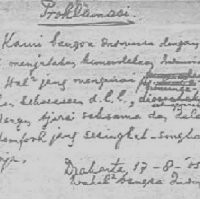 Proklamasi.
Kami bangsa Indonesia dengan
menjatakan kemerdekaan Indone
Hal² jang mengenai
kekoeasaan d.l.l.,
tjara seksama dan dalam
tempoh jang sesingkat-singkat
nja.
Djakarta, 17-8-
Wakil² bangsa Indo